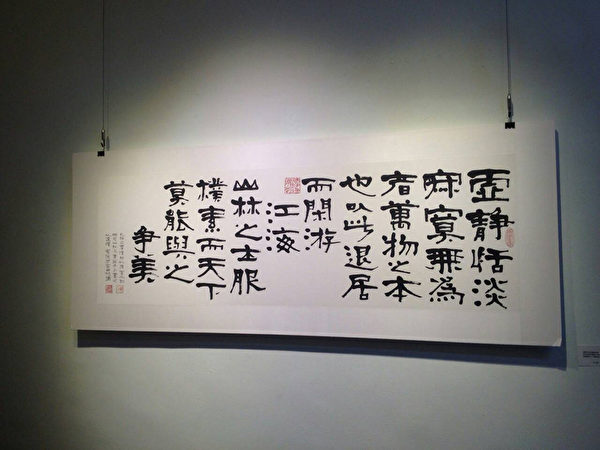 虛静恬淡
寂寞無為
者萬物之本
也以此退居
而閑游
江海
山林之士服
樸素而天下
莫能與之
争美